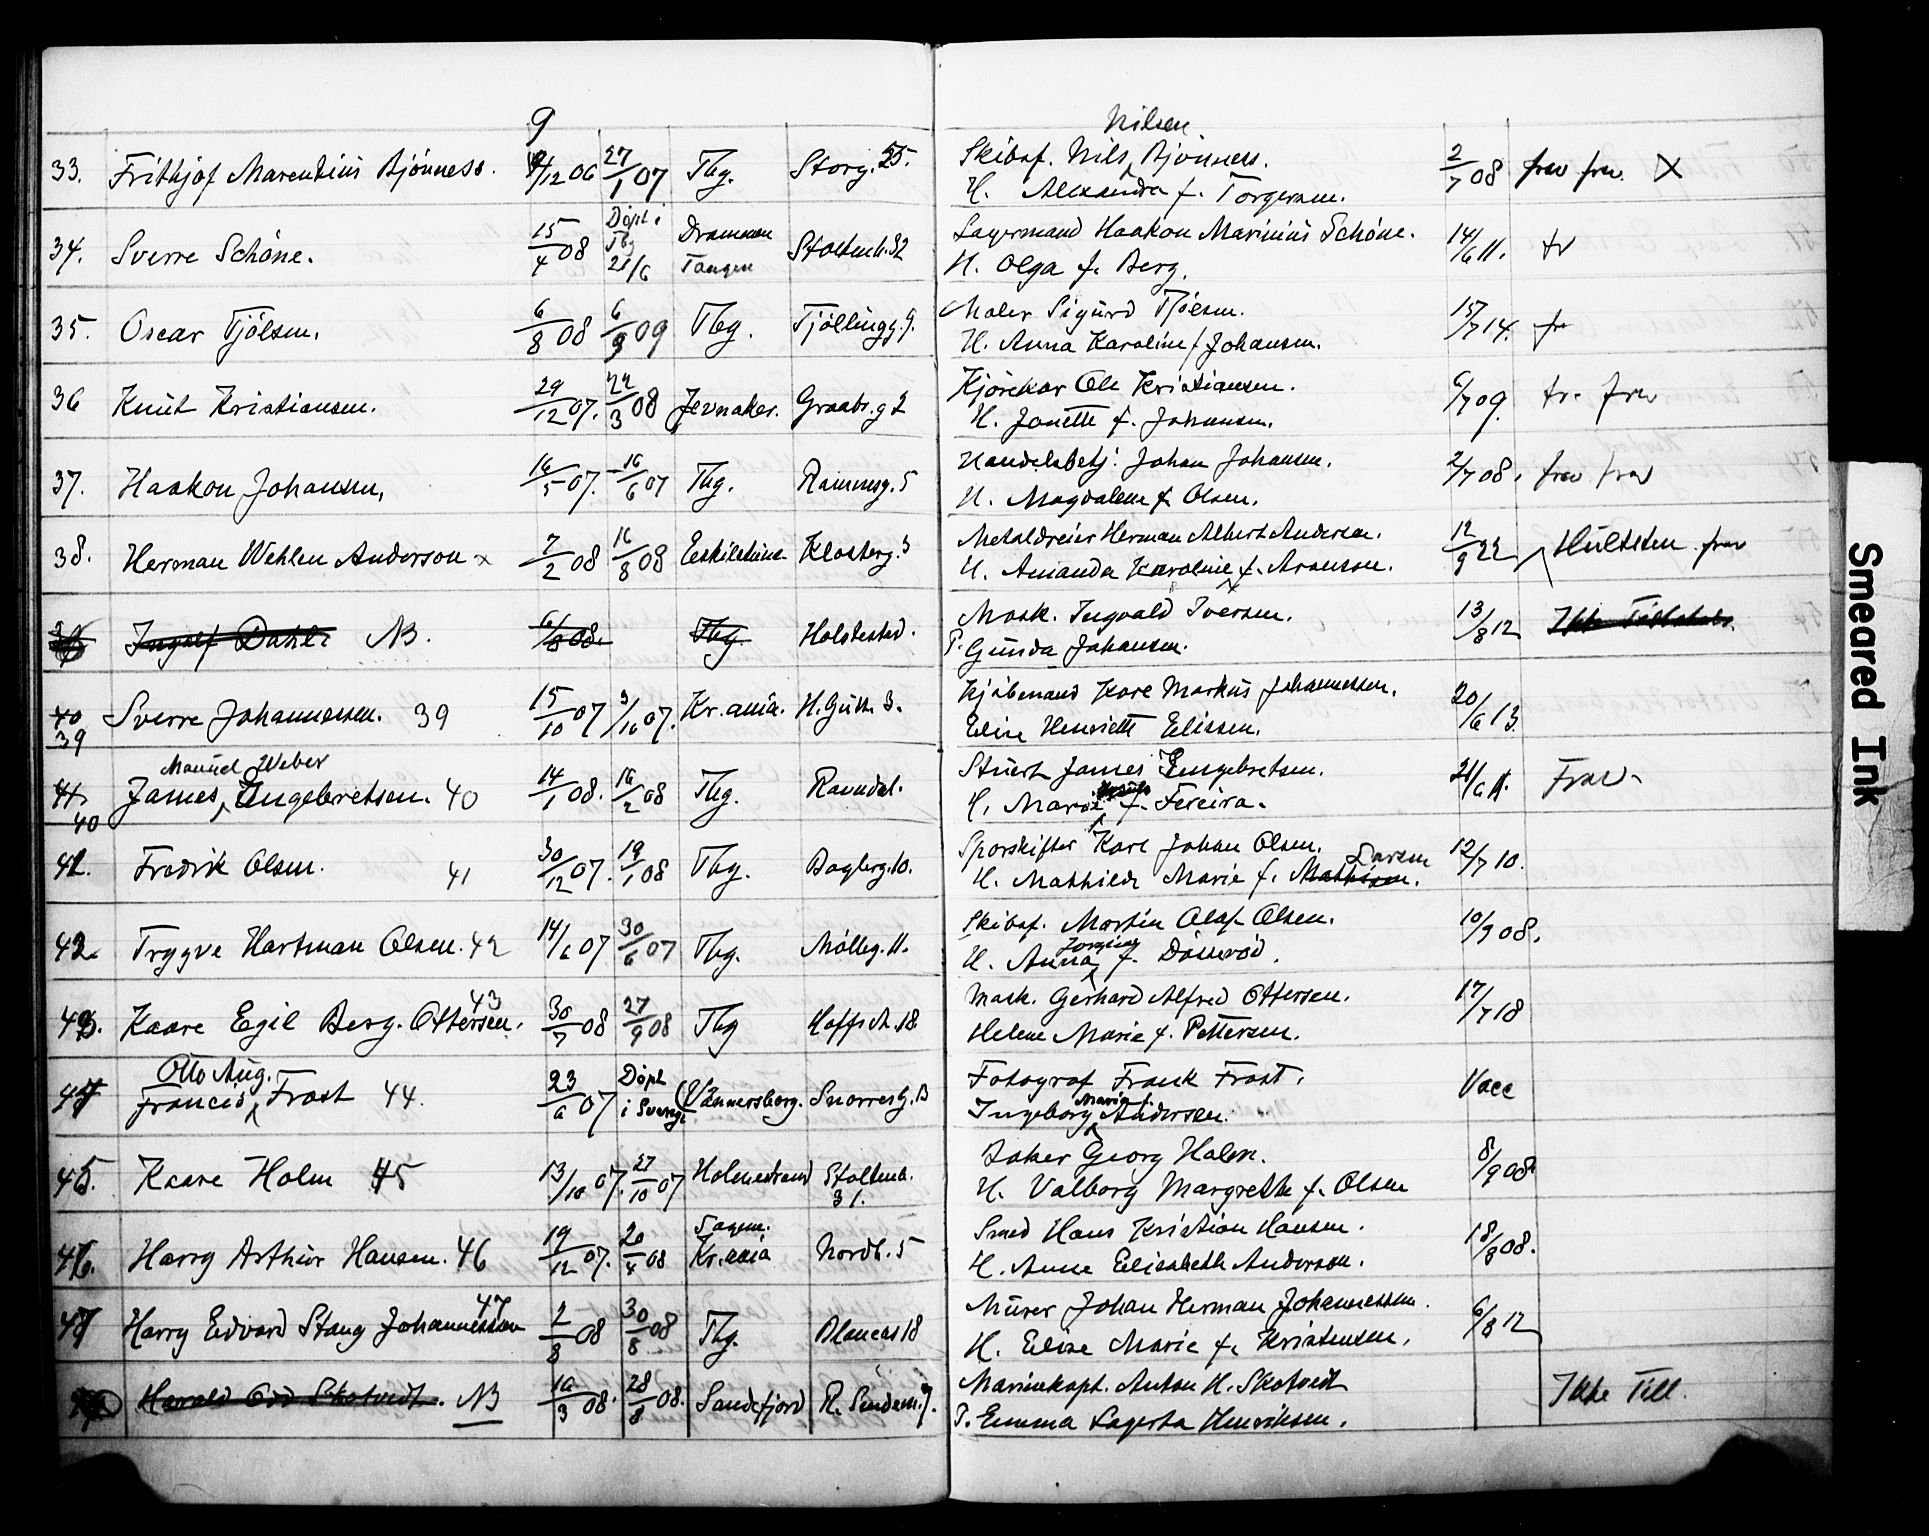 9
33. Frithjof Marentius Bjönness. 9/12 06 27/1 07 Tbg. Storg. 25. Skibsf. Nils Nilsen Bjönness. 2/7 08 frav frav. X
H. Alexandra f. Torgersen.
34. Sverre Schöne. 15/4 08 Döpt i Tbg 21/6 Drammen Tangen Stoltenb. 32 Lagermand Haakon Marinius Schöne. 14/6 11. fr
H. Olga f. Berg.
35. Oscar Tjölsen. 6/8 08 6/9 09 Tbg. Tjöllingg. 9. Maler Sigurd Tjölsen. 15/7 14. fr
H. Anna Karoline f. Johansen.
36 Knut Kristiansen. 29/12 07. 22/3 08 Jevnaker. Graabr.g 2 Kjörekar Ole Kristiansen. 6/7 09. fr. frav
H. Janette f. Johansen.
37. Haakon Johansen. 16/5 07. 16/6 07 Tbg. Rammsg. 5 Handelsbetj. Johan Johansen. 2/7 08. frav frav
H. Magdalene f. Olsen.
38. Herman Wehlen Anderson x 7/2 08 16/8 08 Eskilstuna Klosterg. 3 Metaldreier Herman Albert Anderson. 12/9 22 Hultsten frav
H. Amanda Karoline f. Aronson.
Ingolf Dahl. NB. 6/8 08. Tbg Holstested. Mask. Ingvald Iversen. 13/8 12 Ikke
P. Gunda Johansen.
40 39 Sverre Johannessen. 39 15/10 07 3/16 07. Kr.ania. H. Guth. 3. Kjöbmand Karl Markus Johannessen. 20/6 13.
Elise Henriette Elissen.
Manuel Weber
41 40 James Engebretsen. 40 14/1 08. 16/2 08 Tbg. Ravndal. Stuert James Engebretsen. 21/6 11. Frav.
H. Maria f. Fereira.
42. Fredrik Olsen. 41 30/12 07. 19/1 08 Tbg. Dagberg. 10. Sporskifter Karl Johan Olsen. 12/7 10.
H. Mathilde Marie f. Mathisen. Larsen
43. Trygve Hartman Olsen. 42 14/6 07 30/6 07 Tbg. Mölleg. 11. Skibsf. Martin Olaf Olsen. 10/9 08.
H. Anna Jorgine f. Dösseröd.
43. Kaare Egil Berg. Ottersen. 43 30/7 08 27/9 08 Tbg Hoffs A. 18 Mask. Gerhard Alfred Ottersen. 17/7 18
Helene Marie f. Pettersen.
Otto Aug.
Francis Frost 44. 23/6 07 Döpt i Sverige (Vännersborg. Snorres G. 13 Fotograf Frank Frost. Vacc
Ingeborg Marie f. Andersen.
45. Kaare Holm 45 13/10 07. 27/10 07 Holmestrand Stoltenb. 31. Baker Georg Holm. 8/9 08
H. Valborg Margrethe f. Olsen
46. Harry Arthur Hansen. 46 19/12 07. 20/4 08 Sagene. Kr.ania Nordb. 5 Smed Hans Kristian Hansen. 18/8 08.
H. Anne Elisabeth Anderson.
48 Harry Edvard Stang Johannessen 47 2/8 08 30/8 08 Tbg. Blancas 18 Murer Johan Herman Johannessen. 6/8 12
H. Elise Marie f. Kristensen.
Harald Odd Skotvedt. NB 10/3 08. 28/8 08. Sandefjord R. Sindem. 7. Marinekapt. Anton H. Skotvedt Ikke Till.
P. Emma Lagerta Henriksen.
Smeared Ink